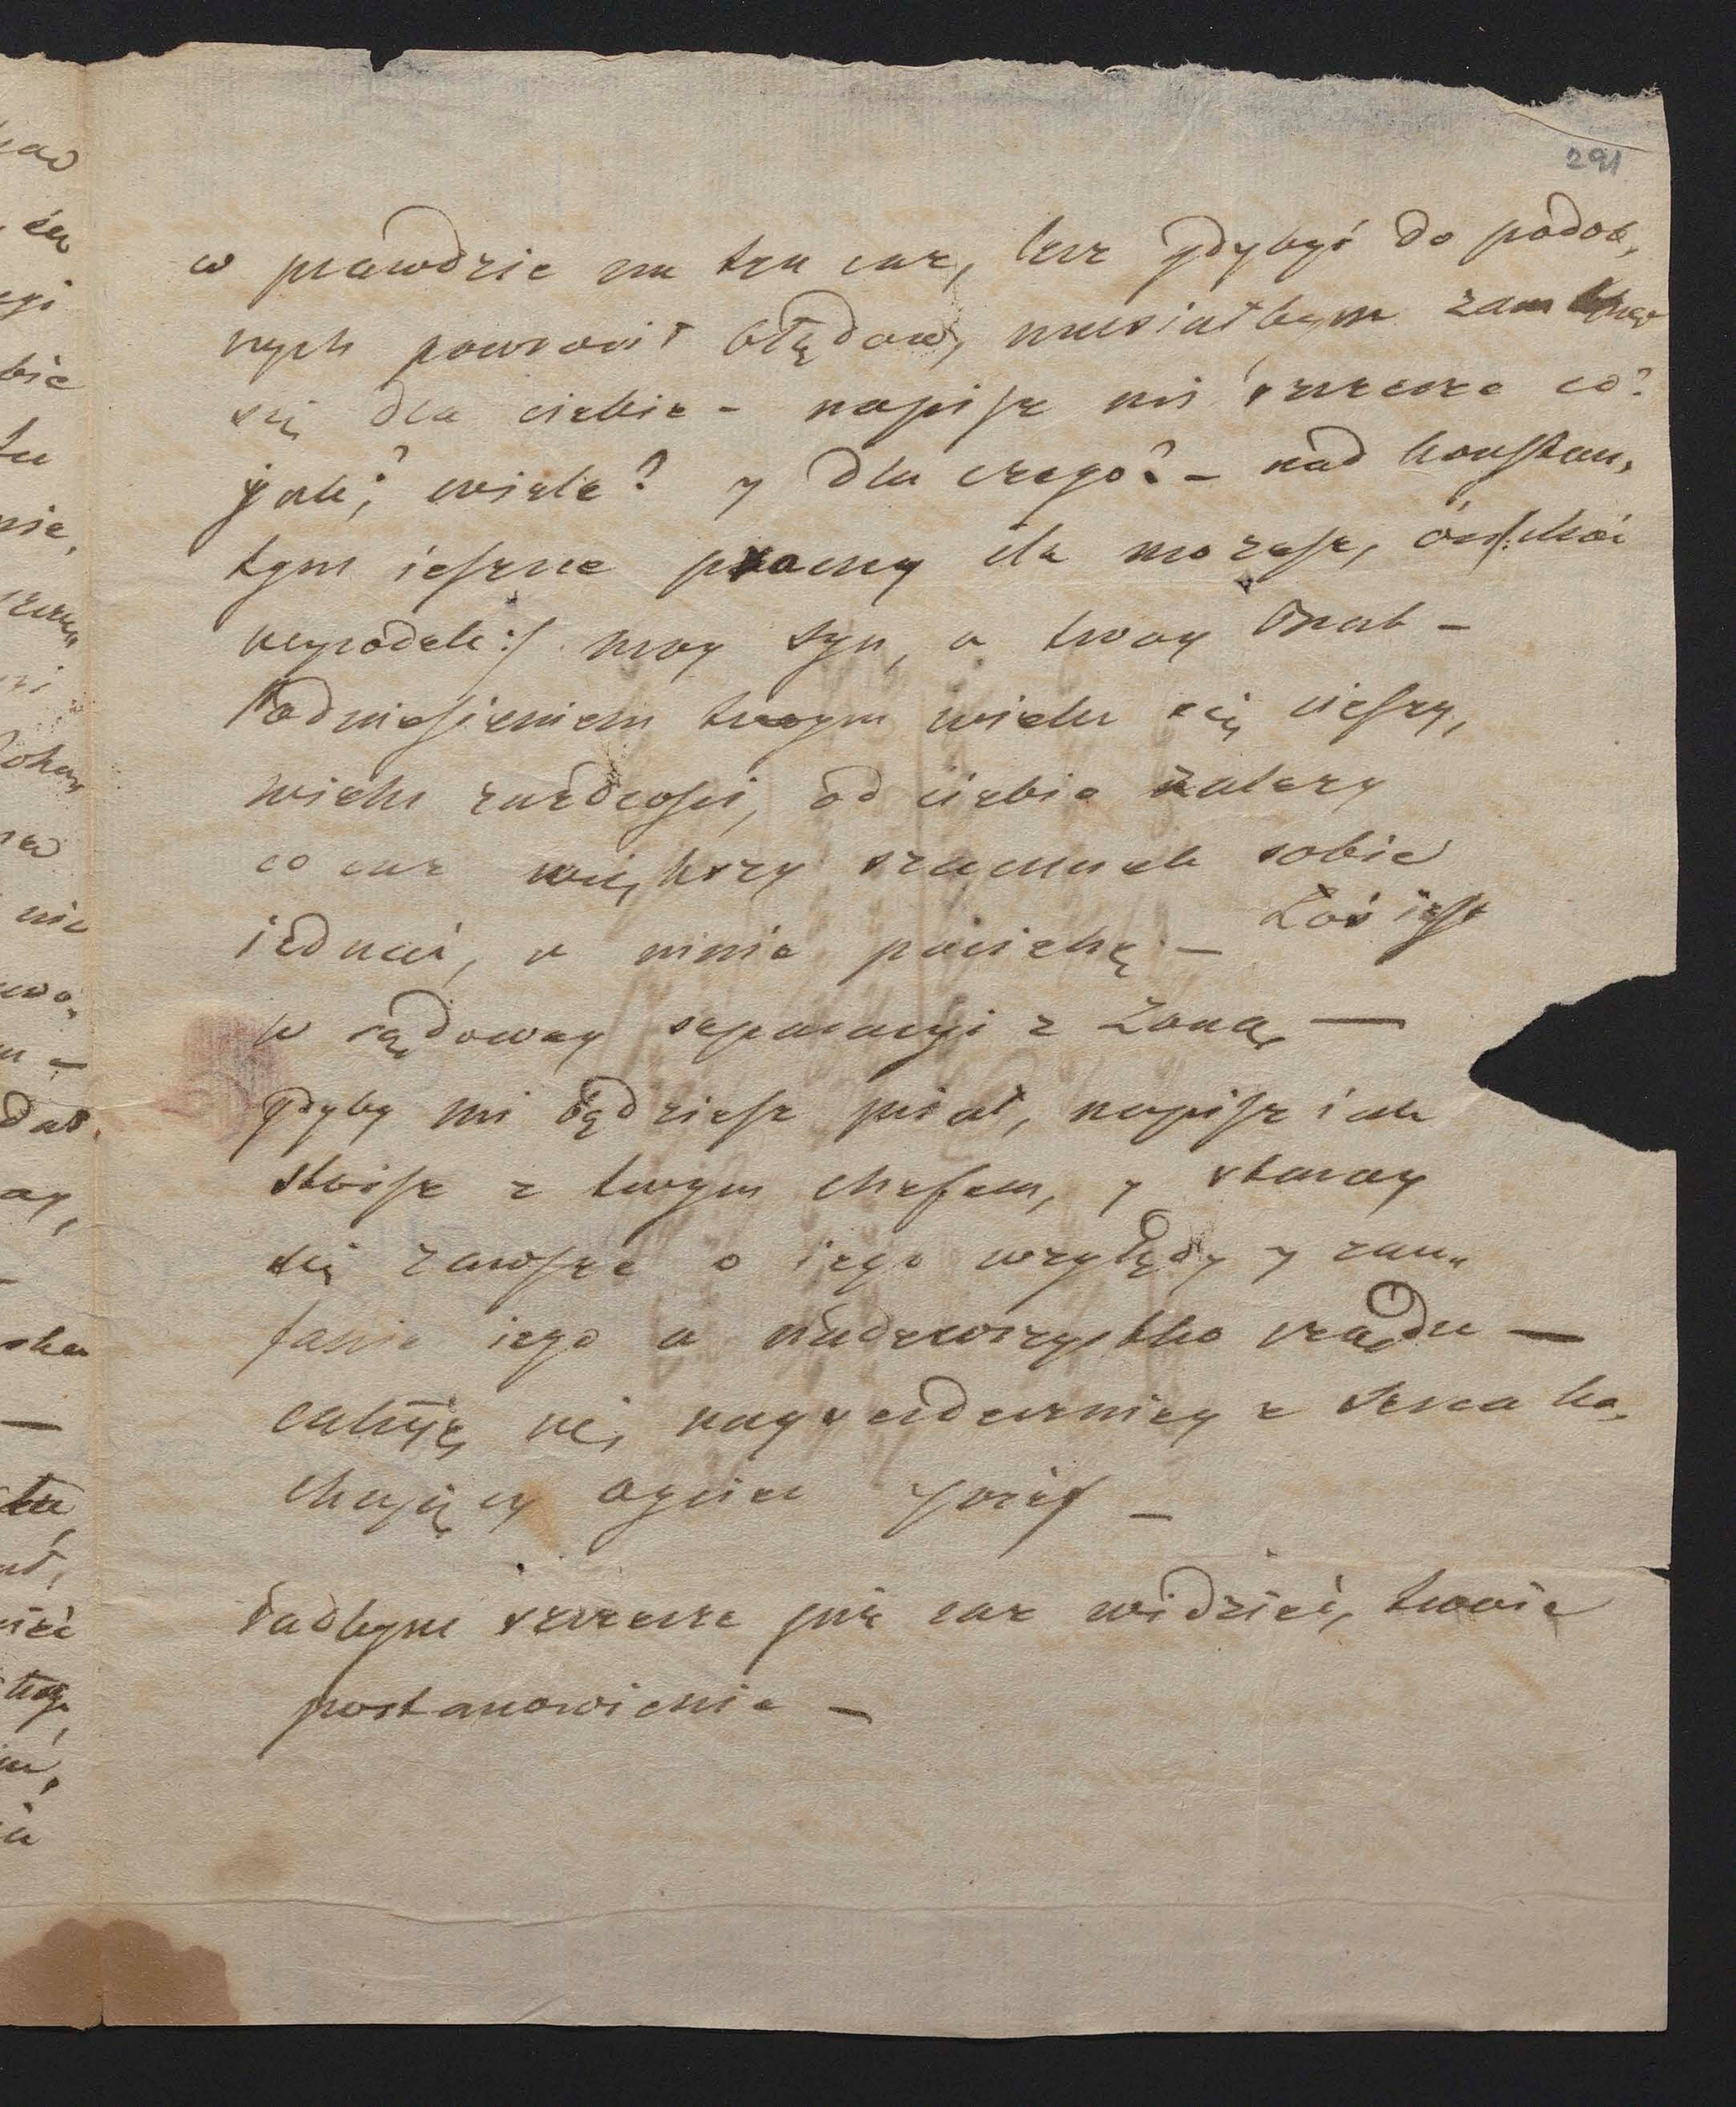 291
w prawdzie na ten raz, lecz gdybyś do podob,
nych powrocił błędow, musiałbym zamknąć
się dla ciebie - napisz mi szczerze co?
jak? wiele? y dla czego? - nad konstan,
tym ieszcze pracuy ile możesz,
wyrodek :/ moy syn, a twoy brat -
Podniesieniem twoym wielu się cieszy,
wielu zazdrości, od ciebie zależy
co raz większy szacunek sobie
iednać, a mnie pociechę - Łoś iest
w sądowey separacyi z Żoną —
gdyby mi będziesz pisał, napisz iak
stoisz z twoym chefem, y staray
się zawsze o iego względy y zau„
fanie iego a nadewszystko rządu —
całuię cię nayserdeczniey z serca ko,
chaiący oyciec Jozef -
Radbym szczerze już raz widzieć, twoie
postanowienie -